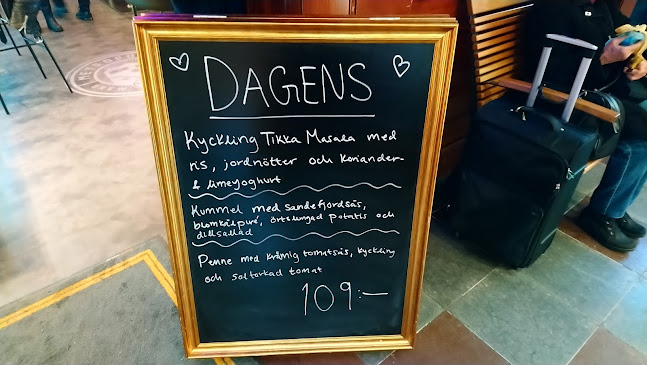 DAGENS
Kyckling Tikka Masala med
ris, jordnötter och koriander-
& limeyoghurt
Kummel med sandefjordsås,
blomkålpuré, örtslungad potatis och
dillsallad
Penne med krämig tomatsås, kyckling
och soltorkad tomat
109:-